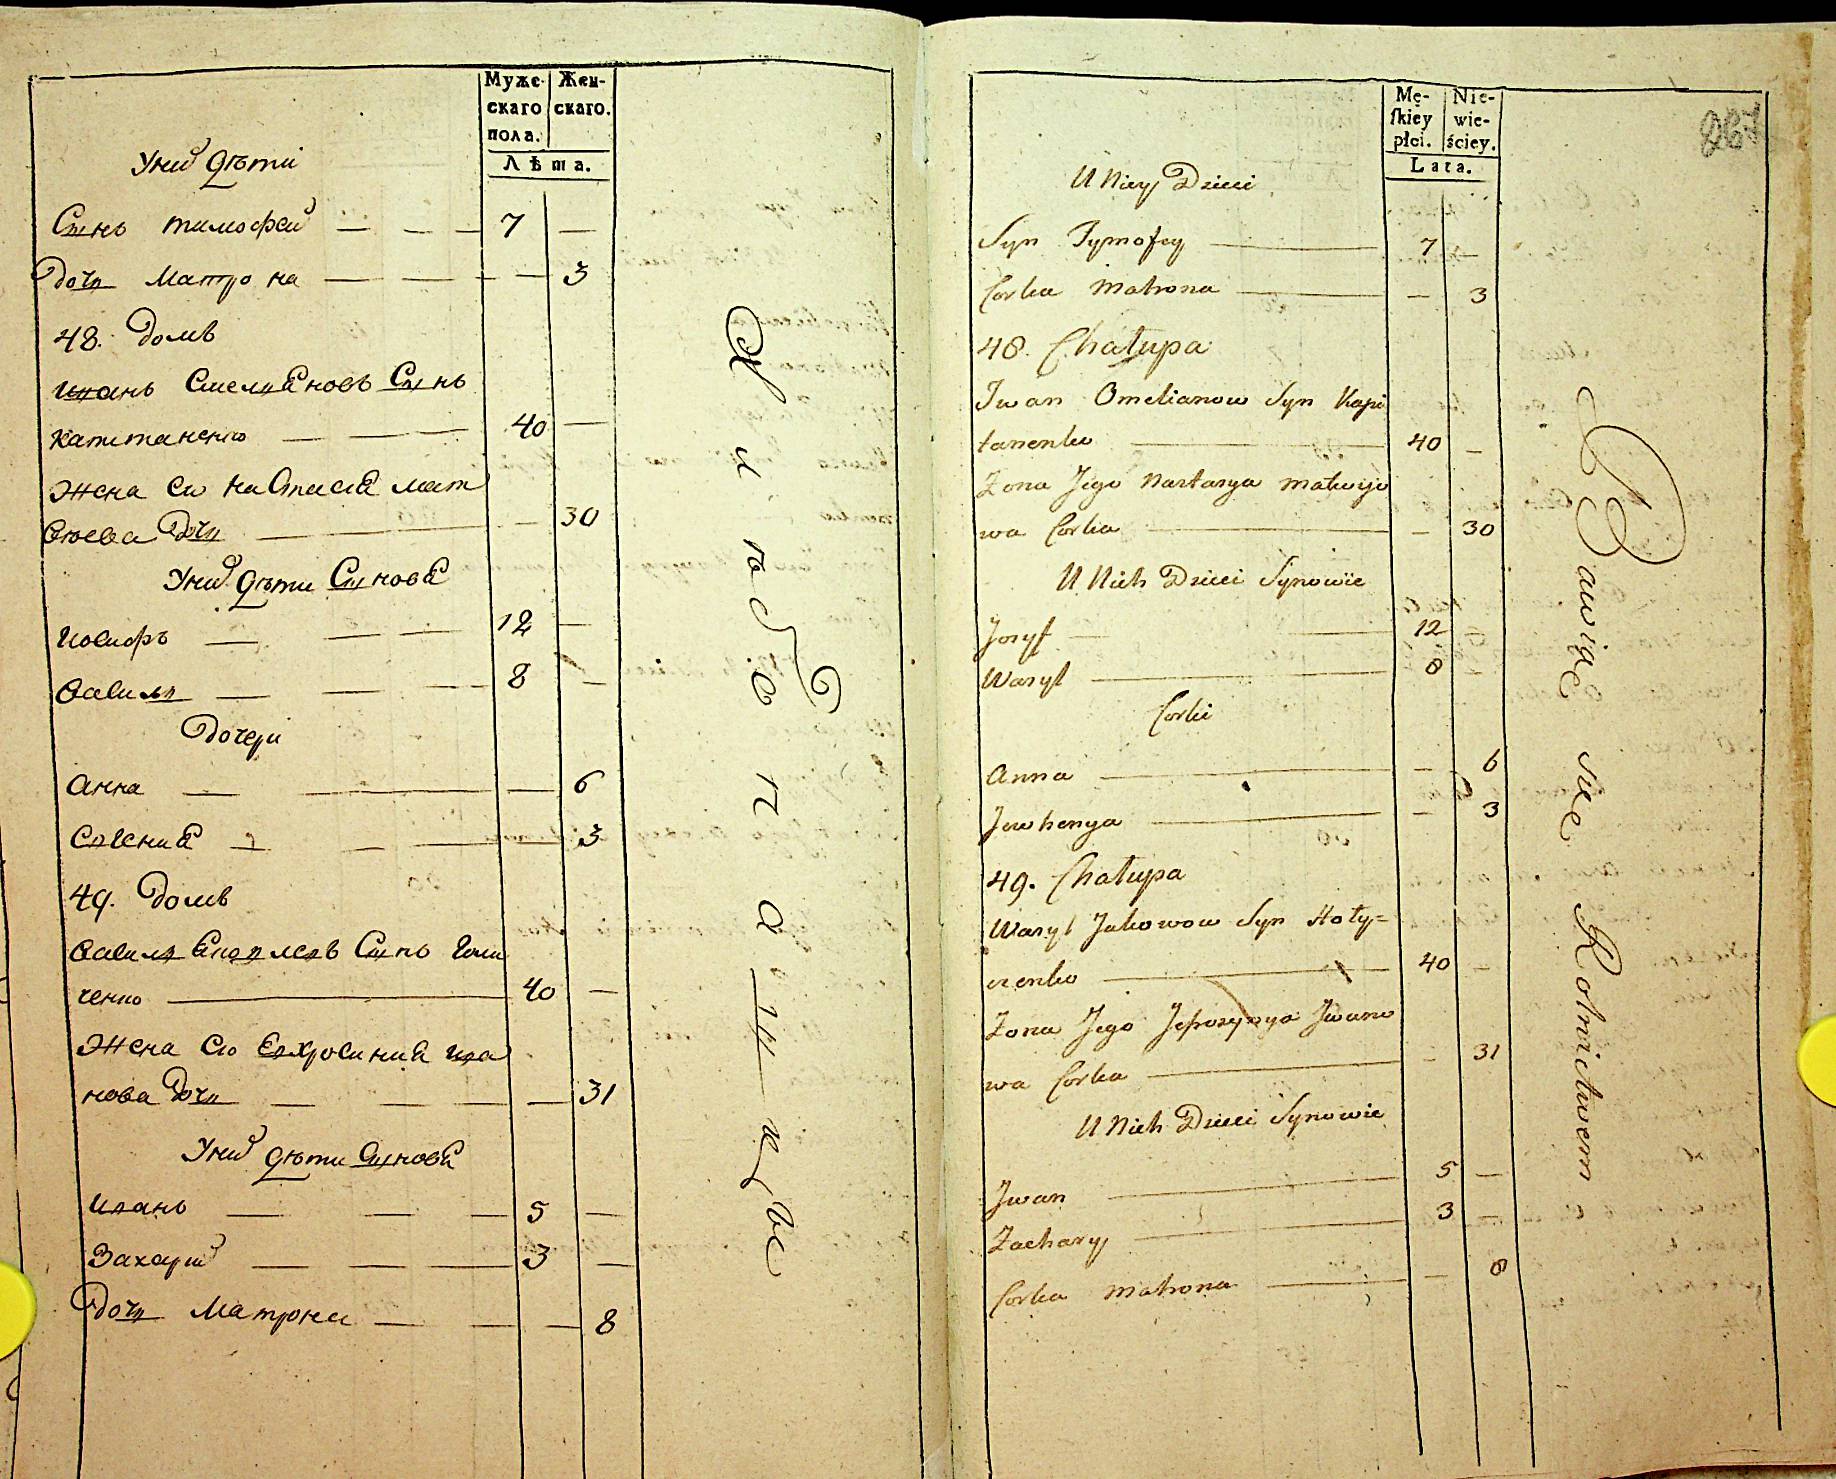 Муже-
скаго
пола.
Жен-
скаго.
Лѣта.
Уних дѣти
Сынъ тимофей — — — 7 —
Дочь Матрона — — — — 3
48. Домъ
иванъ Омеляновъ Сынъ
капитаненко — — — 40 —
Жена его Настасия мат
веева Дочь — — 30
Уних дѣти Синовя
иосифъ — — — 12 —
василь — — — 8 —
Дочери
Анна — — — 6
Евгения — — — 3
49. Домъ
василь Яковлевъ Сынъ Голи
ченко — 40 —
Жена его Евхросиния ива
нова Дочь — — — — 31
Уних дѣти Синовя
иванъ — — — 5 —
Захарий — — — 3 —
Дочь Матрона — — — 8
Хлѣбопашеце
Mę-
ſkiey
płci.
Nie-
wie-
ściey.
Lata.
267
U Niey Dzieci
Syn Tymofey — 7 —
Corka Matrona — — 3
48. Chałupa
Iwan Omelianow Syn Kapi
tanenko — 40 —
Zona Jego Nastasya Matwijo
wa Corka — — 30
U Nich Dzieci Synowie
Josyf — — 12 —
Wasyl — 8
Corki
Anna — — 6
Jewhenya — — 3
49. Chałupa
Wasyl Jakowow Syn Hoły=
czenko — 40 —
Zona Jego Jefrozynya Iwano
wa Corka — — 31
U Nich Dzieci Synowie
Iwan — 5 —
Zachary — 3 —
Corka Matrona — — 8
Bawiąc sie Rolnictwem